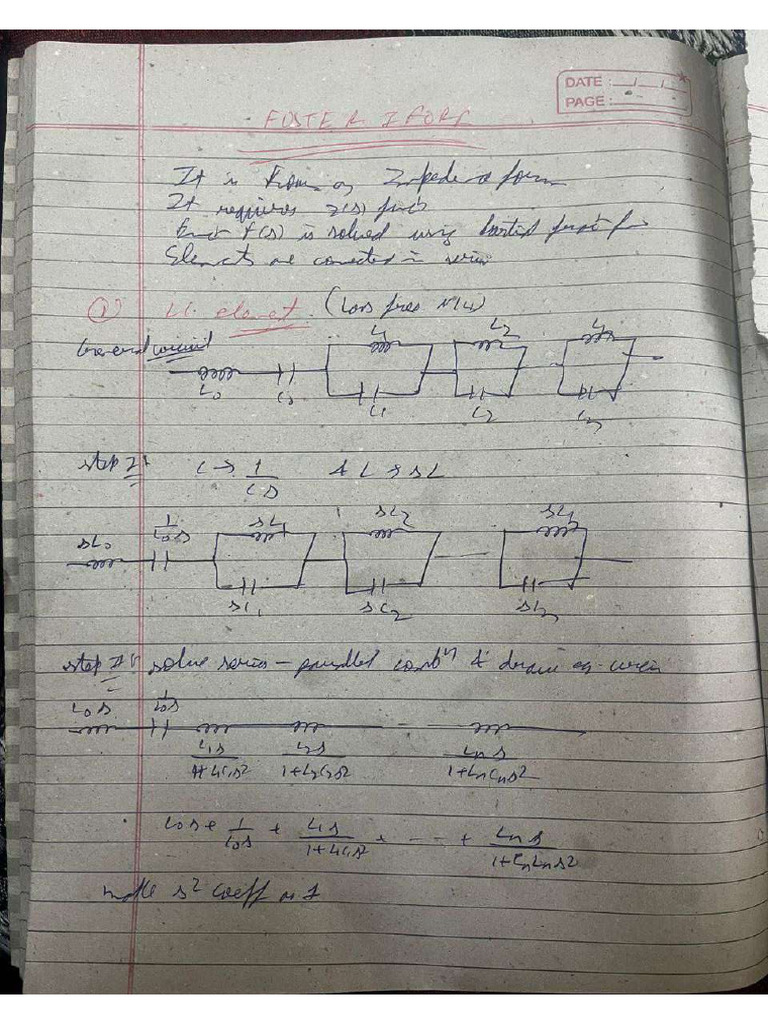 DATE : __/__/__
PAGE :
FOSTER I FORM
It is known as Impedance form
It requires Z(s) func
Funct f(s) is solved using partial
Elements are connected in series
LC element (Loss free N/W)
General circuit
L1 L2
L0 C0
C1 C2 Cn
step I: C → 1/Cs & L → sL
sL0 1/C0s sL1 sL2
sC1 sC2
step II: solve series - parallel combn & draw eq. circuit
L0s 1/C0s
L1s/1+L1C1s² L2s/1+L2C2s² Lns/1+LnCns²
L0s + 1/C0s + L1s/1+L1C1s² + ---- + Lns/1+CnLns²
make s² coeff as 1